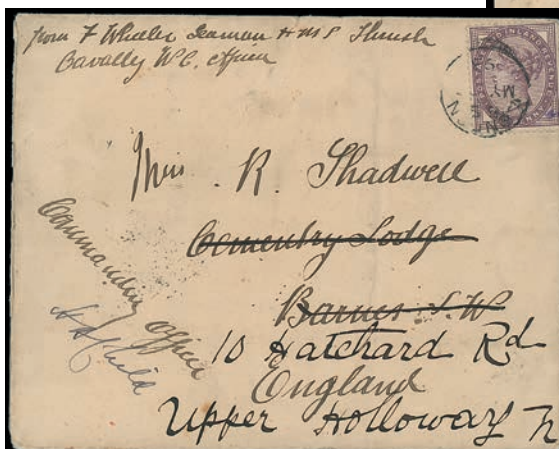 from F Wheeler Seaman HMS Thrush
Cavally W.C. Africa
Miss. R. Shadwell
Cementry Lodge
Barnes S.W
10 Hatchard Rd
England
Upper Holloway N
Commanding Officer